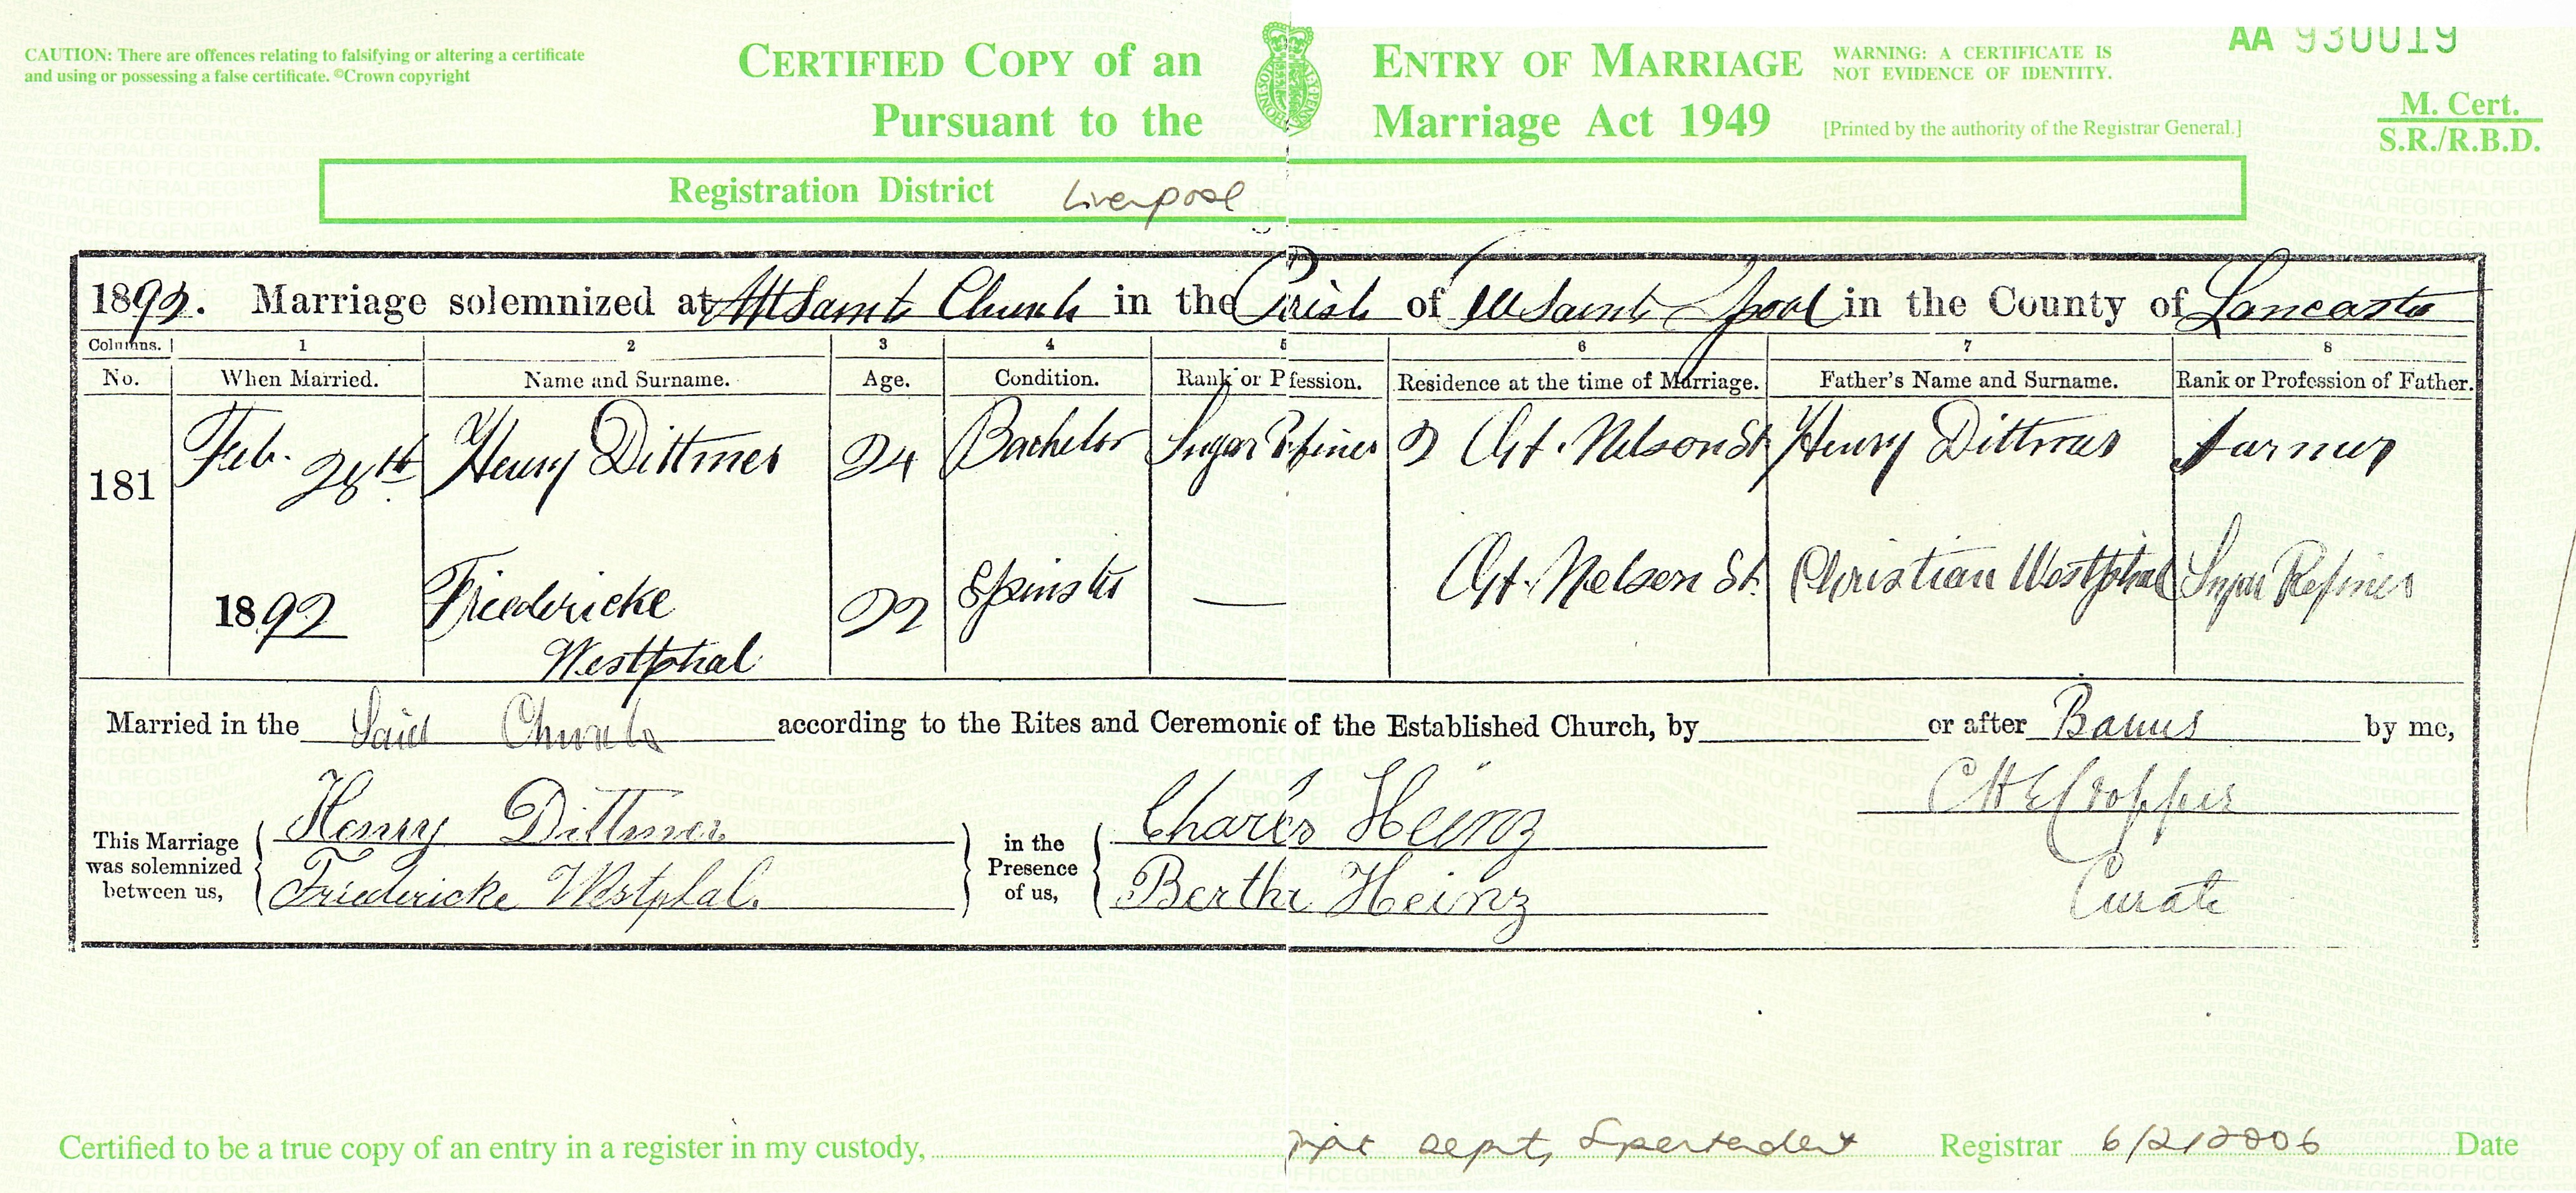 CAUTION: There are offences relating to falsifying or altering a certificate
and using or possessing a false certificate. ©Crown copyright
CERTIFIED COPY of an ENTRY OF MARRIAGE
Pursuant to the Marriage Act 1949
WARNING: A CERTIFICATE IS
NOT EVIDENCE OF IDENTITY.
[Printed by the authority of the Registrar General.]
AA 930019
M. Cert.
S.R./R.B.D.
Registration District Liverpool
1892. Marriage solemnized at All Saints Church in the Parish of All Saints Lpool in the County of Lancaster
Columns. 1 2 3 4 5 6 7 8
No. When Married. Name and Surname. Age. Condition. Rank or Pfession. Residence at the time of Marriage. Father's Name and Surname. Rank or Profession of Father.
181 Feb. 28th Henry Dittmer 24 Bachelor Sugar Refiner 2 Gt. Nelson St Henry Dittmer Farmer
1892 Friedericke Westphal 22 Spinster — Gt. Nelson St. Christian Westphal Sugar Refiner
Married in the Said Church according to the Rites and Ceremonie of the Established Church, by or after Banns by me,
This Marriage was solemnized between us, Henry Dittmer in the Presence of us, Charles Heinz C H E Cropper
Friedericke Westphal. Bertha Heinz Curate
Certified to be a true copy of an entry in a register in my custody, Registrar 6/2/2006 Date